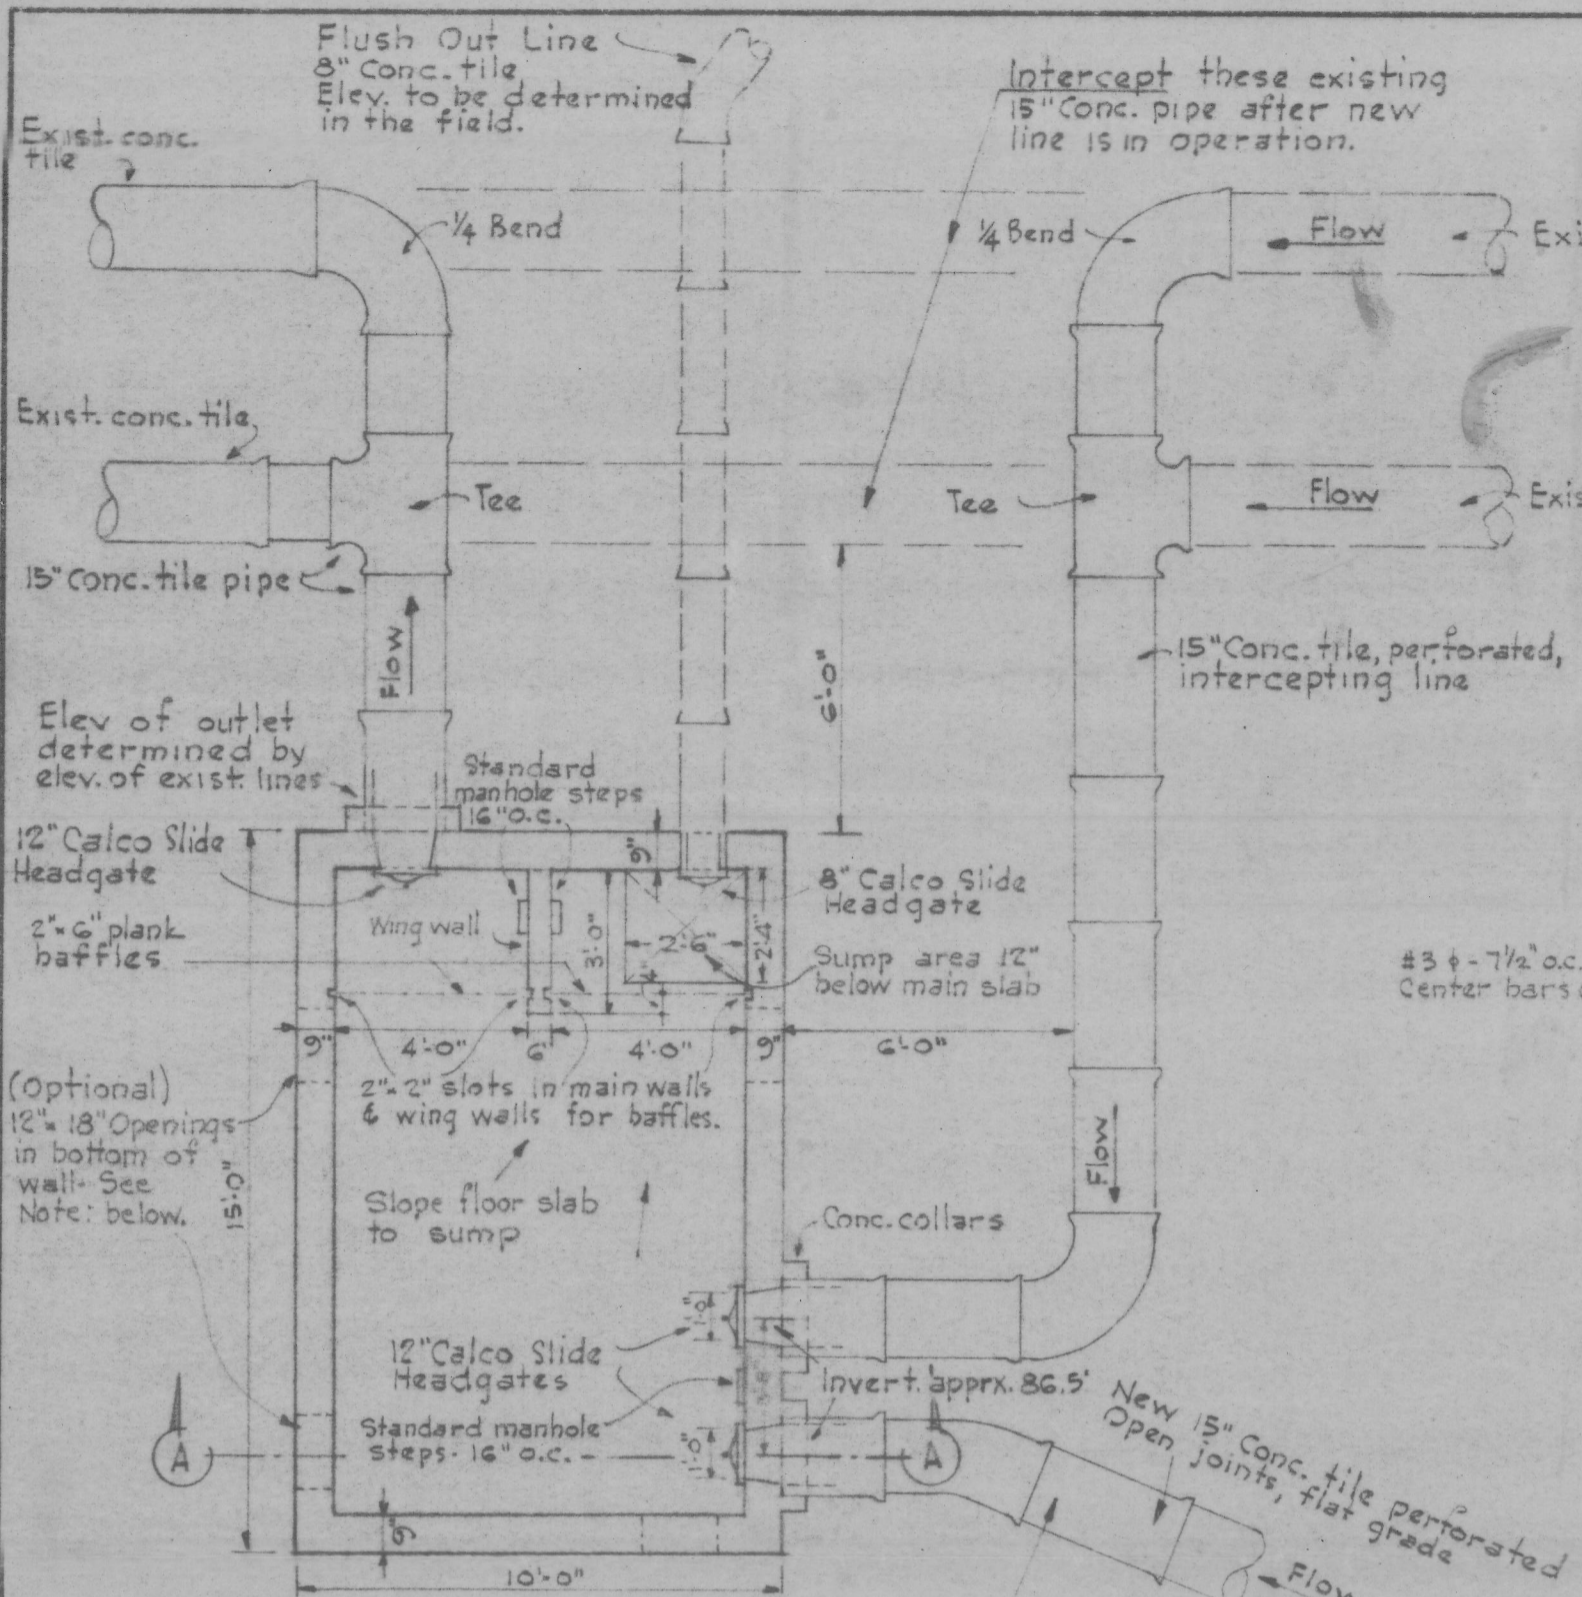 Flush Out Line
8" Conc. tile
Elev. to be determined
in the field.
Intercept these existing
15" Conc. pipe after new
line is in operation.
Exist. conc.
tile
1/4 Bend
1/4 Bend
Flow
Exist. conc. tile
Tee
Tee
Flow
15" Conc. tile pipe
Flow
6'-0"
15" Conc. tile, perforated,
intercepting line
Elev of outlet
determined by
elev. of exist. lines
Standard
manhole steps
16" o.c.
12" Calco Slide
Headgate
9"
8" Calco Slide
Headgate
2" x 6" plank
baffles
Wing wall
3'-0"
2'-6"
2'-4"
Sump area 12"
below main slab
#3 ϕ - 7 1/2" o.c.
Center bars
9"
4'-0"
6"
4'-0"
9"
6'-0"
(Optional)
12" x 18" Openings
in bottom of
wall - See
Note: below.
2" x 2" slots in main walls
& wing walls for baffles.
15'-0"
Slope floor slab
to sump
Flow
Conc. collars
12" Calco Slide
Headgates
1'-0"
Invert. apprx. 86.5'
Standard manhole
steps - 16" o.c.
1'-0"
A
A
New 15" Conc. tile perforated
Open joints, flat grade
9"
10'-0"
Flow